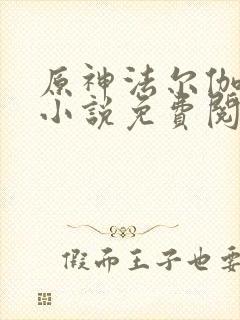 原神法尔伽
小説免費閱
假而王子也要